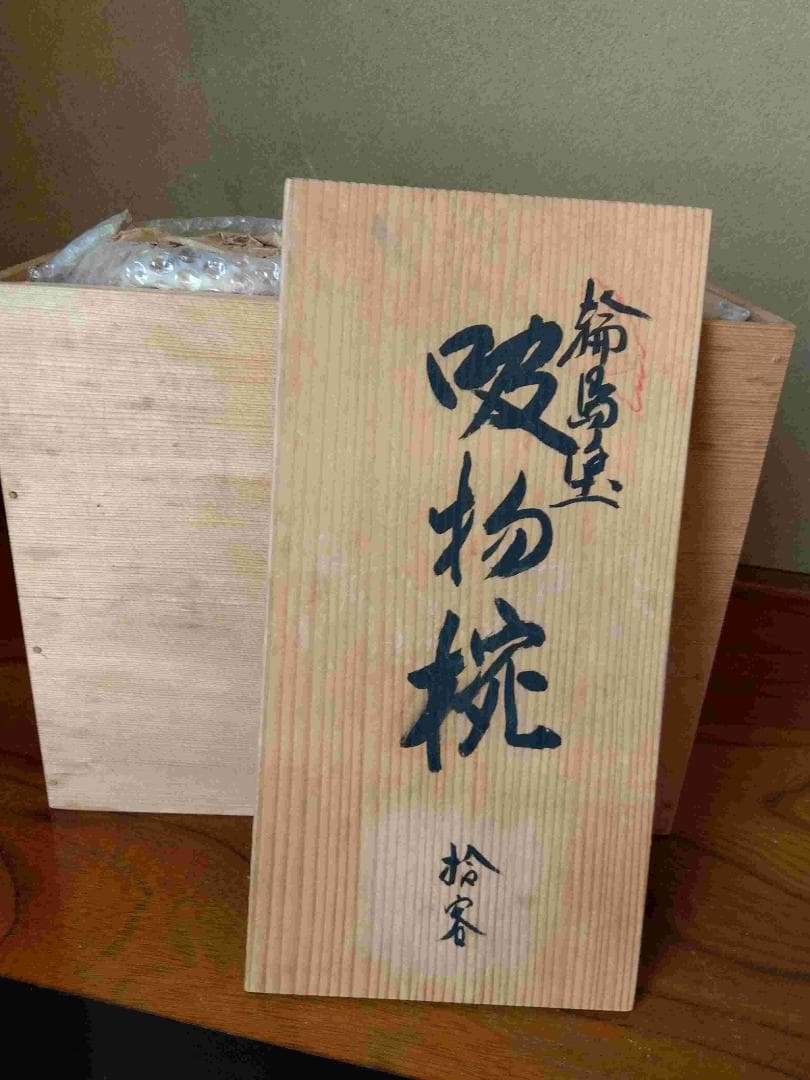 輪島塗
吸物椀
拾客